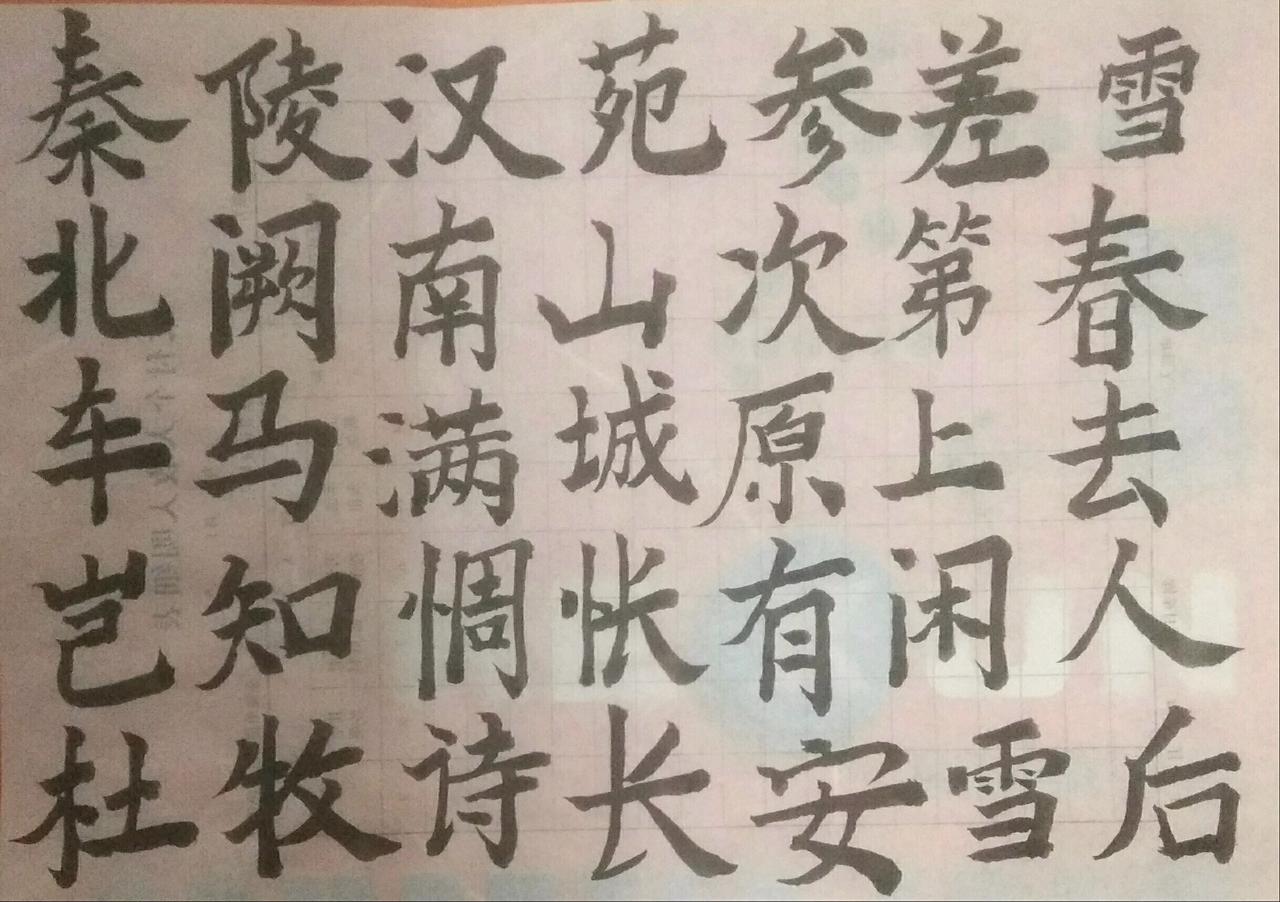 秦陵汉苑参差雪
北阙南山次第春
车马满城原上去
岂知惆怅有闲人
杜牧诗长安雪后